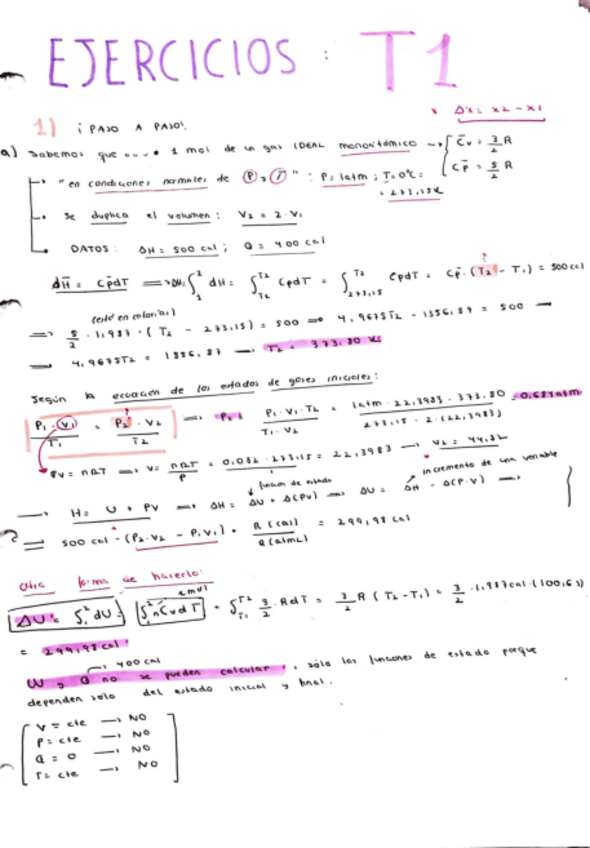 EJERCICIOS: T1
1) ¡PASO A PASO!
* Δx = x2 - x1
a) Sabemos que .... 1 mol de un gas IDEAL monoatómico → C̄v = 3/2 R
C̄p = 5/2 R
"en condiciones normales de P y T": P = 1atm ; T = 0°C =
= 273,15K
Se duplica el volumen: V2 = 2·V1
DATOS: ΔH = 500 cal ; Q = 400 cal
dH̄ = C̄pdT ⟹ ΔH = ∫₁² dH = ∫T1T2 CpdT = ∫273,15T2 CpdT = C̄p · (T2 - T1) = 500 cal
(esté en calorías)
⟹ 5/2 · 1,987 · (T2 - 273,15) = 500 ⟹ 4,9675T2 - 1356,87 = 500 →
→ 4,9675T2 = 1856,87 → T2 = 373,80 K
Según la ecuación de los estados de gases iniciales:
P1·V1/T1 = P2·V2/T2 ⟹ P2 = P1·V1·T2/T1·V2 = 1atm · 22,3983 · 373,80/273,15 · 2·(22,3983) = 0,684atm
PV = nRT ⟹ V = nRT/P = 0,082 · 273,15 = 22,3983 → V2 = 44,8L
función de estado
incremento de una variable
→ H = U + PV ⟹ ΔH = ΔU + Δ(PV) ⟹ ΔU = ΔH - Δ(P·V) →
? = 500 cal - (P2·V2 - P1V1) · R (cal)/R (atmL) = 299,98 cal
Otra forma de hacerlo:
1 mol
ΔU = ∫₁² dU = ∫₁² nC̄v dT = ∫T1T2 3/2 · RdT = 3/2 R (T2 - T1) = 3/2 · 1,987cal · (100,65)
= 299,98 cal
→ 400 cal
W y Q no se pueden calcular, sólo las funciones de estado porque
dependen solo del estado inicial y final.
V = cte → NO
P = cte → NO
Q = 0 → NO
T = cte → NO